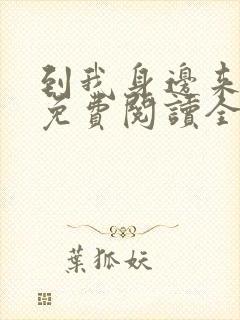 到我身邊来
免費閱讀全
葉狐妖